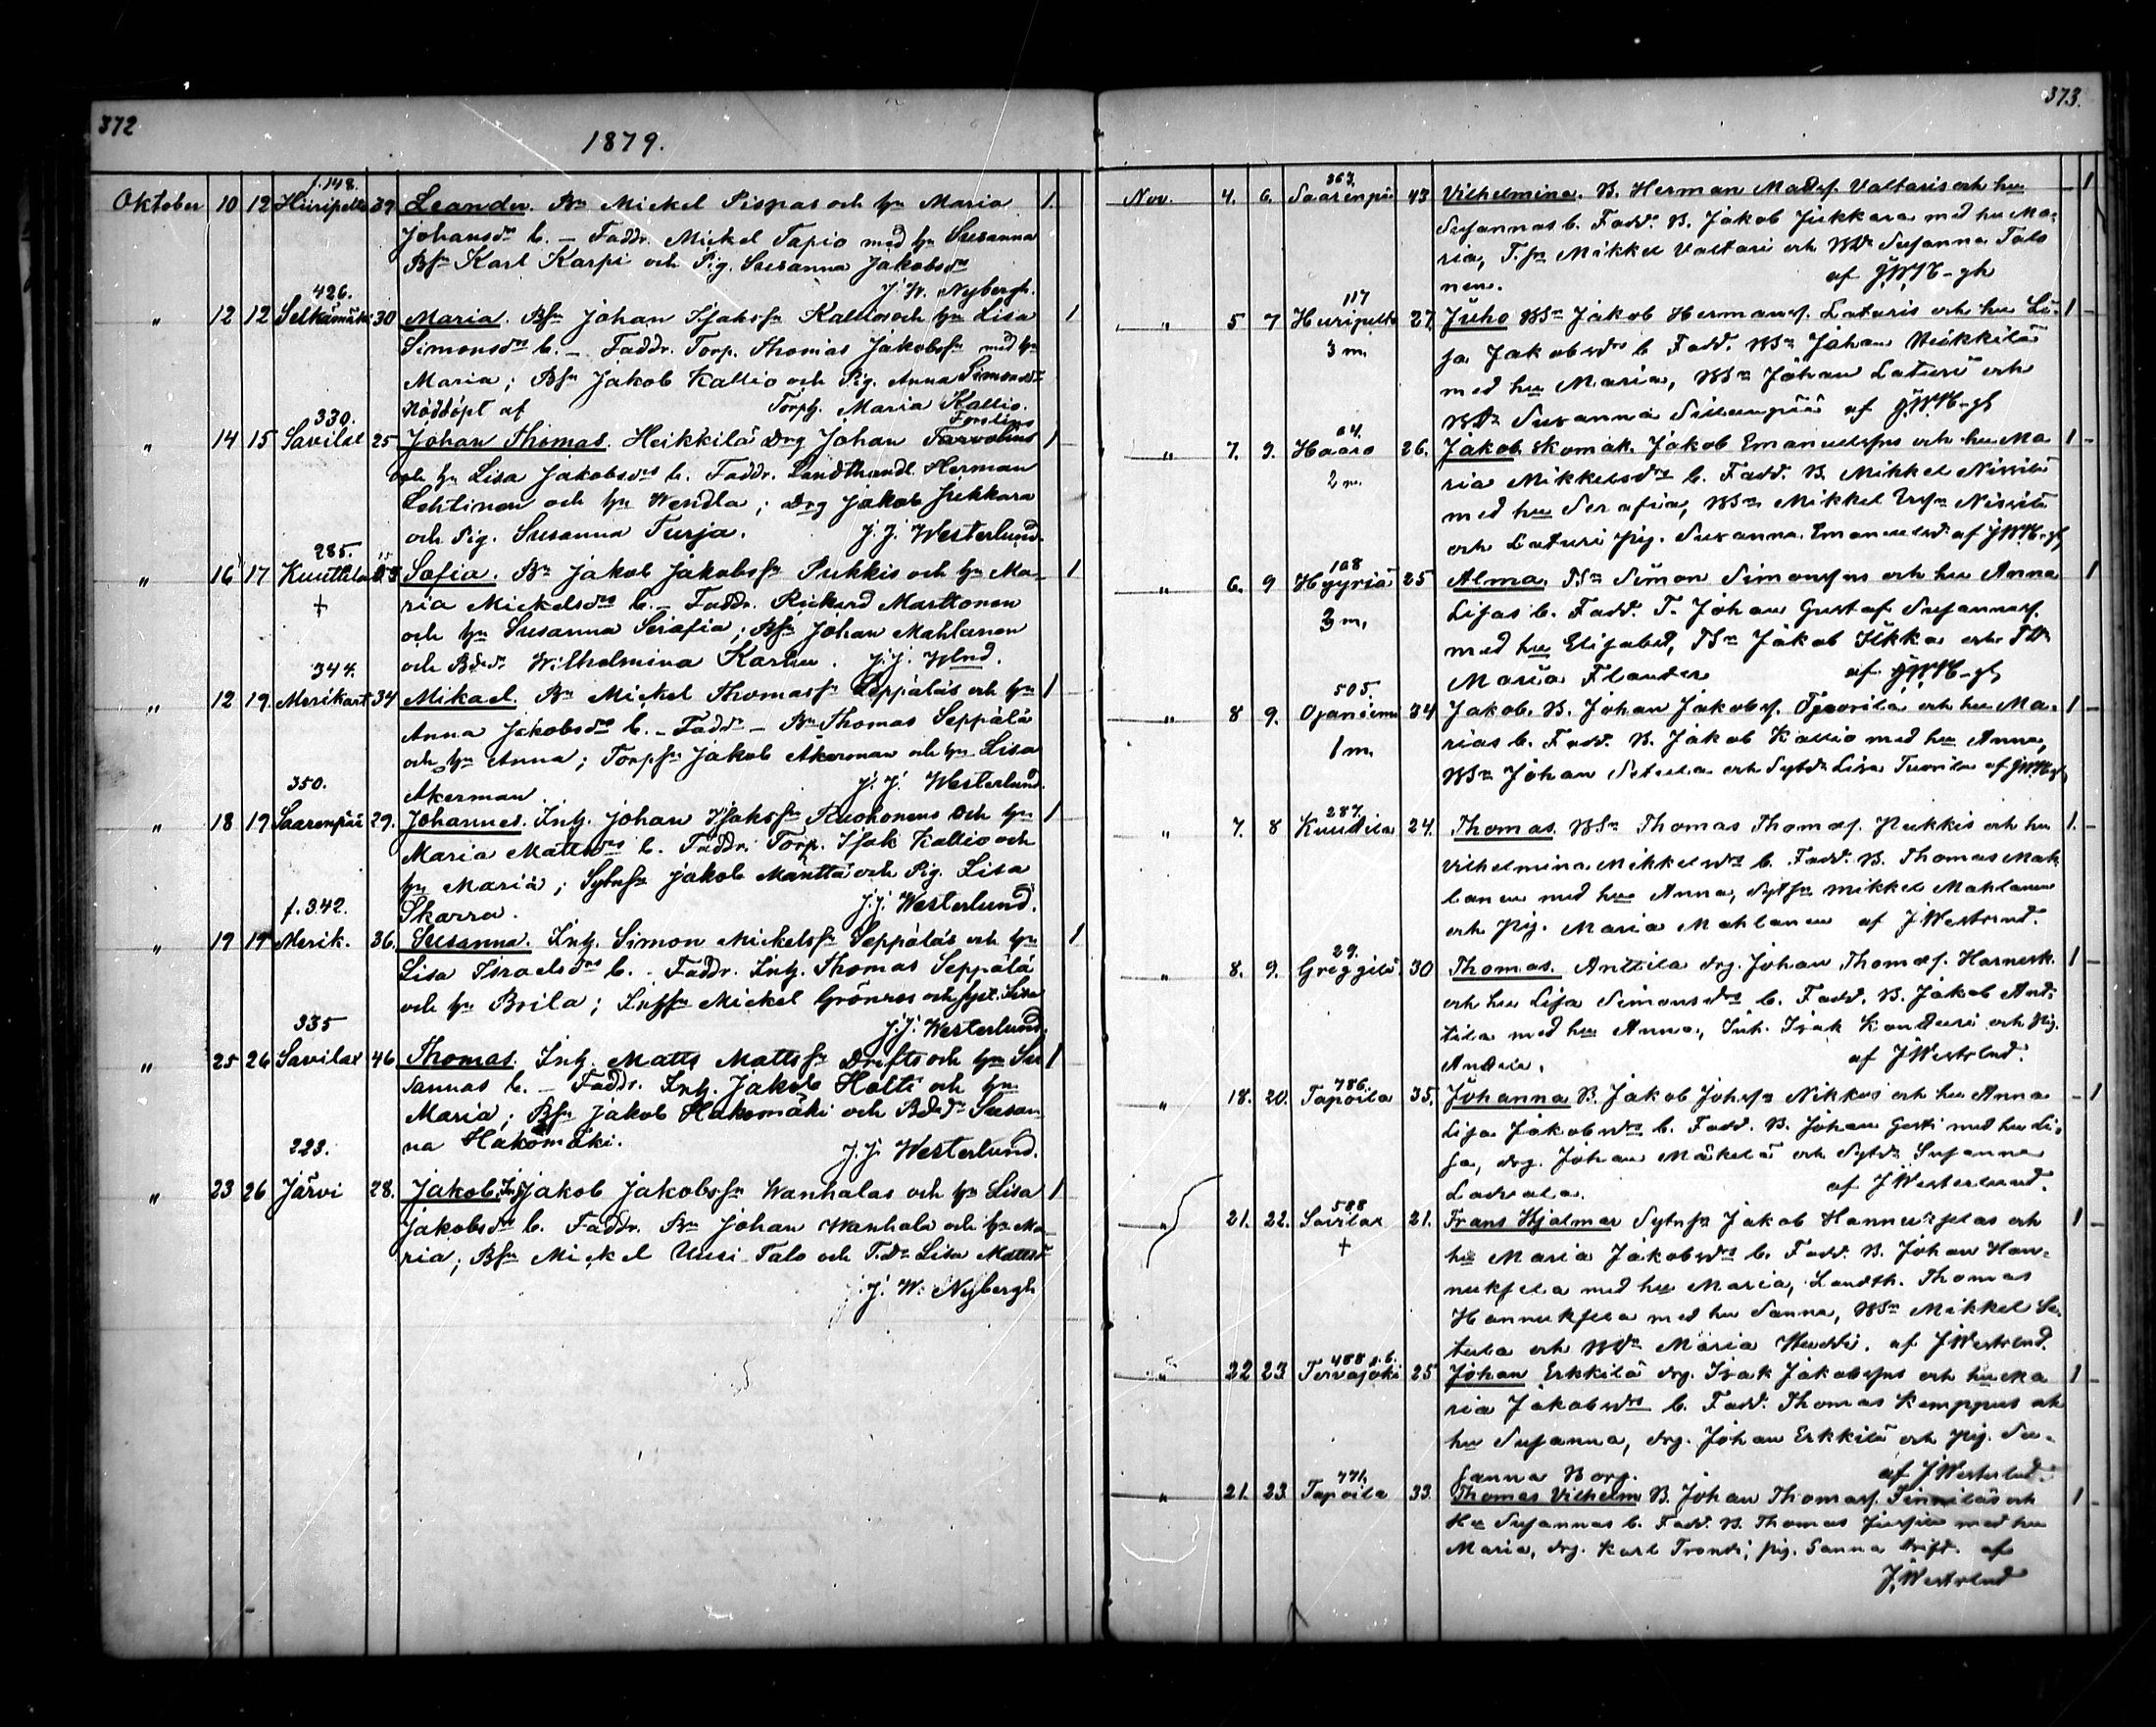 372
1879.
f. 148.
Oktober 10 12 Hiiripelto 39 Leander. Bn Mickel Pispas och hn Maria 1.
Johansdrs b. – Faddr. Mickel Tapio med hn Susanna
Bsn Karl Karpi och Pig. Susanna Jakobsdr
J. W. Nybergh.
426.
" 12 12 Selkämäki 30 Maria. Bsn Johan Isakssn Kallios och hn Lisa 1
Simonsdrs b. – Faddr. Torp. Thomas Jakobssn med hn
Maria; Bsn Jakob Kallio och Pig. Anna Simonsdr
Nöddöpt af Torph. Maria Kallio.
330. Forslins
" 14 15 Savilax 25 Johan Thomas. Heikkilä Drg Johan 1
och hn Lisa Jakobsdrs b. Faddr. Landthandl. Herman
Lehtinen och hn Wendla; Drg Jakob Jukkara
och Pig. Susanna Turja. J. J. Westerlund.
285.
" 16 17 Kuuttila Sofia. Bn Jakob Jakobssn Pukkis och hn Ma- 1
+ ria Mickelsdrs b. – Faddr. Rickard Marttonen
och hn Susanna Serafia; Bsn Johan Mahlanen
och Bdr Wilhelmina Karhu. J. J. Wlnd.
344.
" 12 19. Merikart 34 Mikael. Bn Mickel Thomassn Seppäläs och hn 1
Anna Jakobsdrs b. – Faddr – Bn Thomas Seppälä
och hn Anna; Torpsn Jakob Åkerman och hn Lisa
Åkerman J. J. Westerlund.
350.
" 18 19 Saarenpää 29. Johannes. Inh. Johan Isakssn Ruohonens och hn 1
Maria Mattsdrs b. Faddr. Torp. Isak Kallio och
hn Maria; Sytnsn Jakob Mänttä och Pig. Lisa
Skarra. J. J. Westerlund.
f. 342.
" 19 19 Merik. 36. Susanna. Inh. Simon Mickelssn Seppäläs och hn 1
Lisa Israelsdrs b. – Faddr. Inh. Thomas Seppälä
och hn Brita; Inhsn Mickel Grönroos och Lisa
J. J. Westerlund.
335
" 25 26 Savilax 46 Thomas. Inh. Matts Mattssn Drifts och hn Su 1
sannas b. – Faddr. Inh. Jakob Holti och hn
Maria; Bsn Jakob Hakomäki och Bdr Susan
na Hakomäki. J. J. Westerlund.
223.
" 23 26 Järvi 28. Jakob. Inh Jakob Jakobssn Wanhalas och hn Lisa 1
Jakobsdrs b. Faddr. Bn Johan Wanhala och hn Ma-
ria; Bsn Mickel Uusi-Talo och T.dr Lisa Mattsdr
J. W. Nybergh
373.
367.
Nov. 4. 6. Saarenpää 43 Vilhelmina. B. Herman Madsf. Valtaris och hu 1
Susannas b. Fadd. B. Jakob Jukkara med hu Ma-
ria, T.sn Mikkel Valtari och Susanna Talo
nen. af
117
" 5 7 Hiiripelto 27 Juho Bsn Jakob Hermansf. Laturis och hu Li- 1
3 m. sa Jakobsdrs b Fadd. Bsn Johan Heikkilä
med hu Maria, Bsn Johan Laturi och
Susanna Sillanpää af
64.
" 7. 9. Haaro 26. Jakob. Skomak. Jakob Emanuelssns och hu Ma 1
2 m. ria Mikkelsdrs b. Fadd. B. Mikkel Nissilä
med hu Serafia, Bsn Mikkel Nissilä
och Laturi pig. Susanna Emanuelsd. af
108
" 6. 9 Hyyriä 25 Alma. Simon Simonssns och hu Anna 1
3 m. Lisas b. Fadd. T. Johan Gustaf Susannasf.
med hu Elisabet, Jakob Ilkka och
Maria Flander af
505.
" 8 9. Ojaniemi 34 Jakob. B. Johan Jakobsf. Tjuorila och hu Ma- 1
1 m. rias b. Fadd. B. Jakob Kallio med hu Anna,
Bsn Johan Setula och Sytdr Lisa Tuorila af
287.
" 7. 8 Kuuttila 24. Thomas. Bsn Thomas Thomasf. Pukkis och hu 1.
Vilhelmina Mikkelsdrs b. Fadd. B. Thomas Mah
lanen med hu Anna, Sytsn Mikkel Mahlanen
och pig. Maria Mahlanen af J Westerlund.
29.
" 8. 9. Greggilä 30 Thomas. Anttila drg. Johan Thomasf. Harnesk. 1
och hu Lisa Simonsdrs b. Fadd. B. Jakob Ant-
tila med hu Anna, Inh. Isak Kontturi och pig.
Anttila. af J Westerlnd.
786.
" 18. 20. Tapoila 35. Johanna B. Jakob Johssn Nikkos och hu Anna 1
Lisa Jakobsdrs b. Fadd. B. Johan Gesti med hu Li-
sa, drg. Johan Mäkelä och Sytdr Susanna
af J Westerlund.
508
" 21. 22. Savilax 21. Frans Hjalmar Sytnsn Jakob Hannukselas och 1
+ hu Maria Jakobsdrs b. Fadd. B. Johan Han-
nuksela med hu Maria, Landth. Thomas
Hannuksela med hu Sanna, Bsn Mikkel Se-
tula och Maria af J Westerlnd.
488 s. b.
" 22 23 Tervajoki 25 Johan Erkkilä drg. Isak Jakobssns och hu Ma 1
ria Jakobsdrs b. Fadd. Thomas Kemppus och
hu Susanna, drg. Johan Erkkilä och pig. Su-
sanna Borg. af J Westerlnd.
771.
" 21. 23 Tapoila 33. Thomas Vilhelm B. Johan Thomasf. Finniläs och 1
Hu Susannas b. Fadd. B. Thomas Jussila med hu
Maria, drg. Karl Trondi, pig. Sanna Drift. af
J. Westerlnd